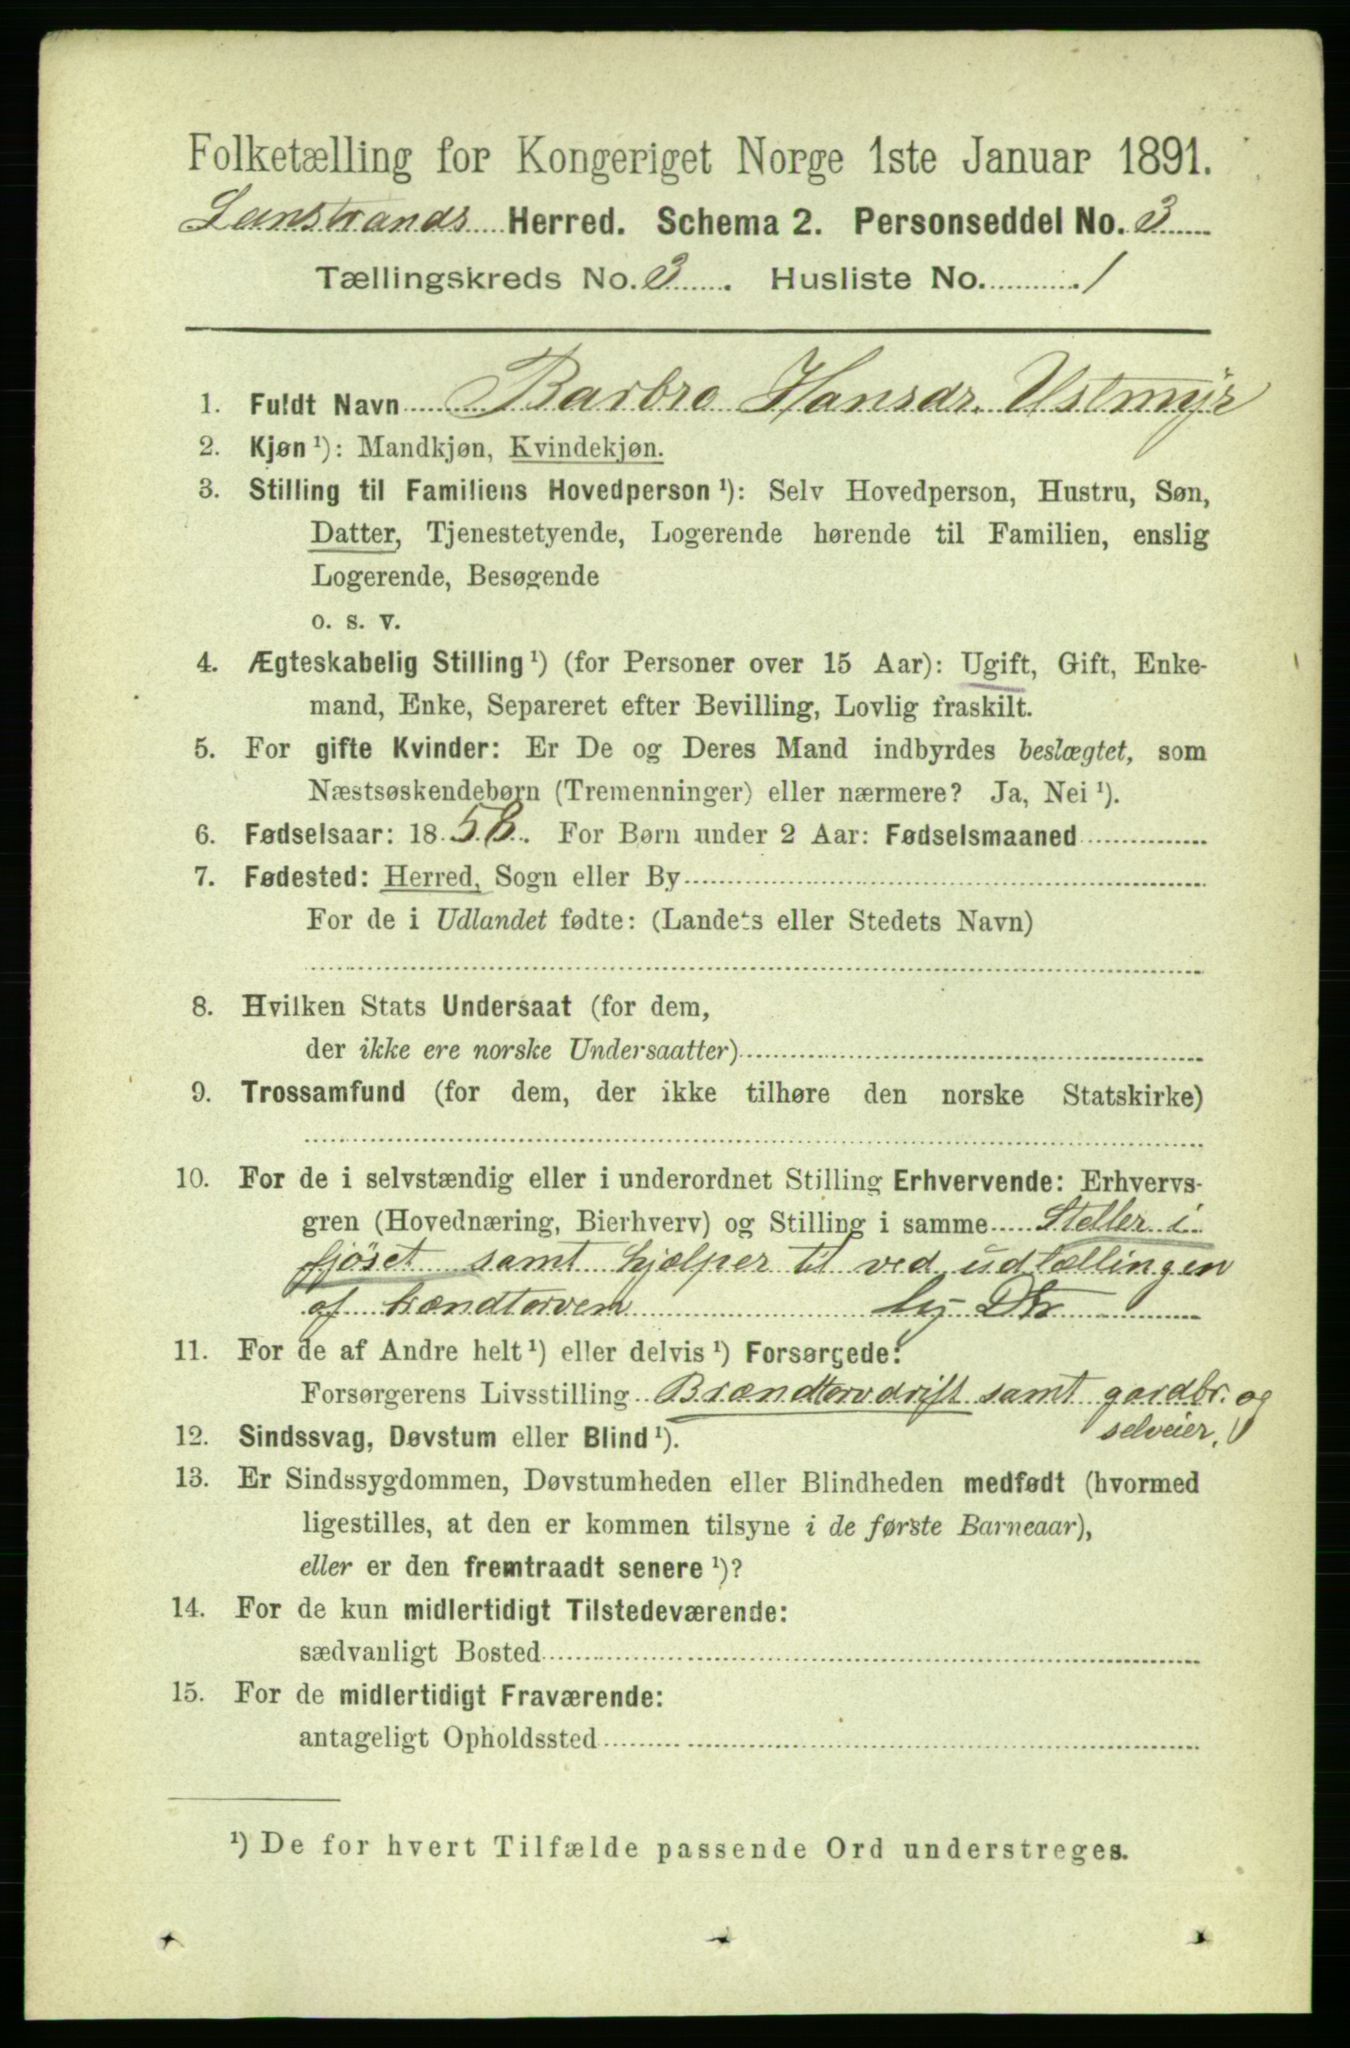 Folketælling for Kongeriget Norge 1ste Januar 1891.
Lenstrands Herred. Schema 2. Personseddel No. 3
Tællingskreds No. 3. Husliste No. 1
1. Fuldt Navn Barbro Hansdr. Ustmyr
2. Kjøn ¹): Mandkjøn, Kvindekjøn.
3. Stilling til Familiens Hovedperson ¹): Selv Hovedperson, Hustru, Søn,
Datter, Tjenestetyende, Logerende hørende til Familien, enslig
Logerende, Besøgende
o. s. v.
4. Ægteskabelig Stilling ¹) (for Personer over 15 Aar): Ugift, Gift, Enke-
mand, Enke, Separeret efter Bevilling, Lovlig fraskilt.
5. For gifte Kvinder: Er De og Deres Mand indbyrdes beslægtet, som
Næstsøskendebørn (Tremenninger) eller nærmere? Ja, Nei ¹).
6. Fødselsaar: 18 58. For Børn under 2 Aar: Fødselsmaaned
7. Fødested: Herred, Sogn eller By
For de i Udlandet fødte: (Landets eller Stedets Navn)
8. Hvilken Stats Undersaat (for dem,
der ikke ere norske Undersaatter)
9. Trossamfund (for dem, der ikke tilhøre den norske Statskirke)
10. For de i selvstændig eller i underordnet Stilling Erhvervende: Erhvervs-
gren (Hovednæring, Bierhverv) og Stilling i samme Steller i
fjöset samt hjælper til ved udtællingen
af brændtorven
11. For de af Andre helt ¹) eller delvis ¹) Forsørgede:
Forsørgerens Livsstilling Brændtorvdrift samt gardbr. og
selveier.
12. Sindssvag, Døvstum eller Blind ¹).
13. Er Sindssygdommen, Døvstumheden eller Blindheden medfødt (hvormed
ligestilles, at den er kommen tilsyne i de første Barneaar),
eller er den fremtraadt senere ¹)?
14. For de kun midlertidigt Tilstedeværende:
sædvanligt Bosted
15. For de midlertidigt Fraværende:
antageligt Opholdssted
¹) De for hvert Tilfælde passende Ord understreges.